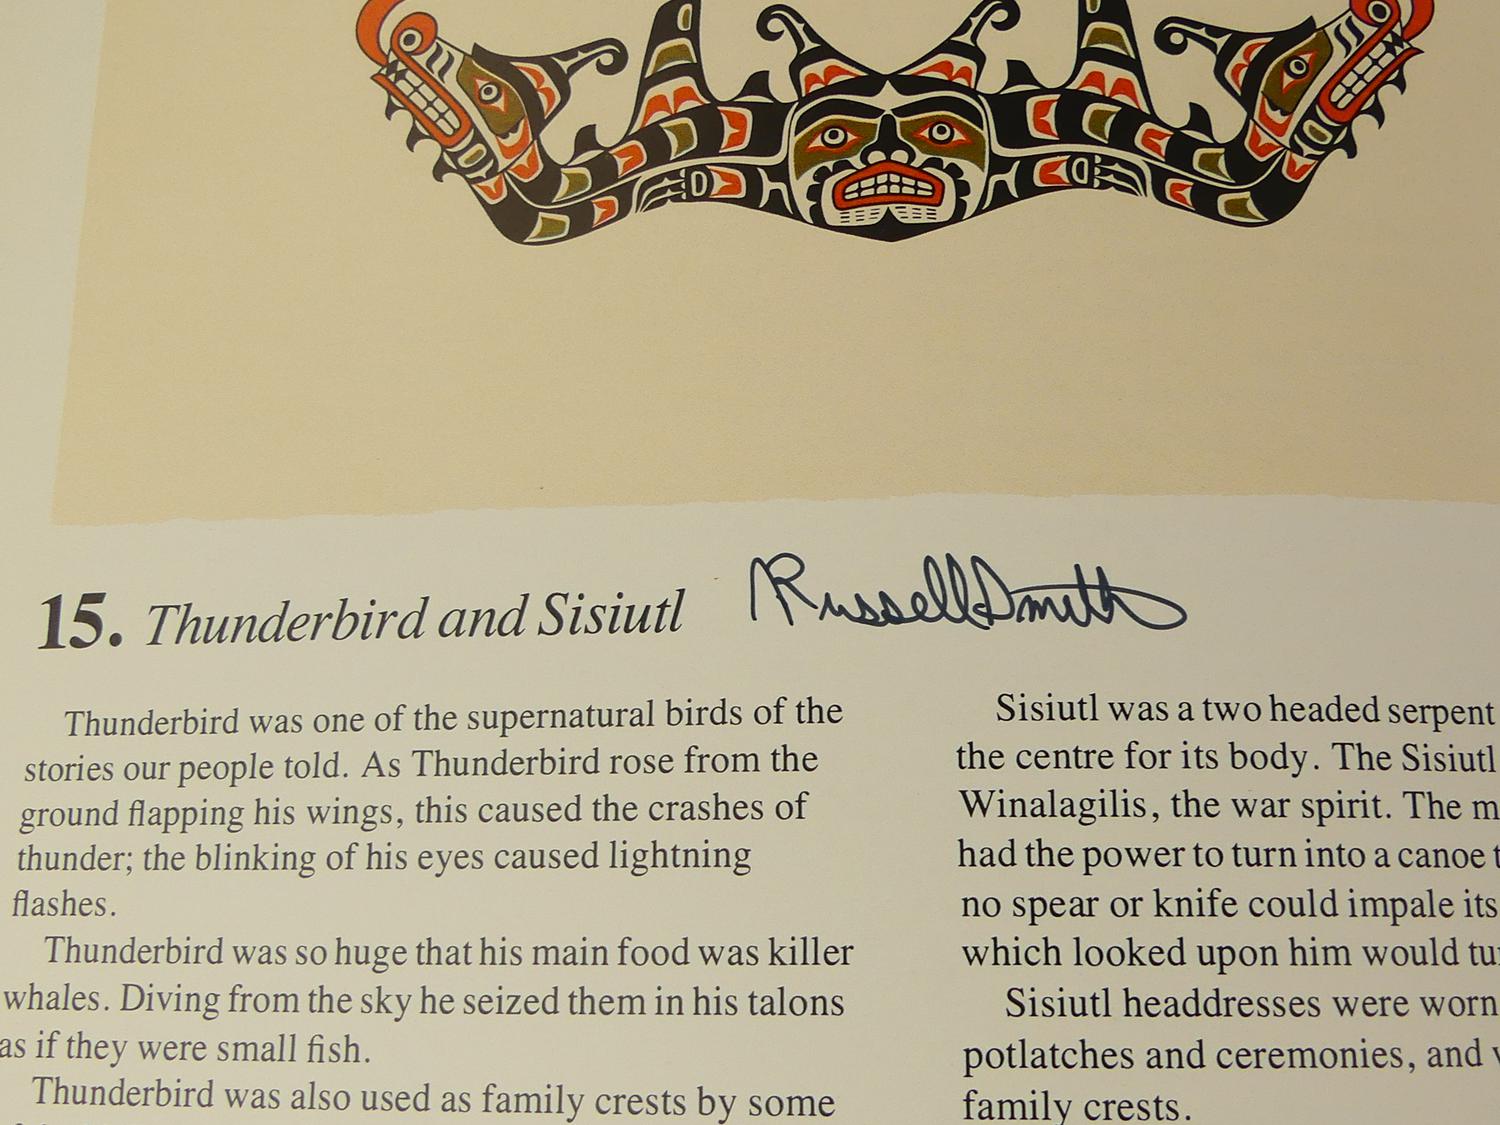 15. Thunderbird and Sisiutl
Russell Smith
Thunderbird was one of the supernatural birds of the
stories our people told. As Thunderbird rose from the
ground flapping his wings, this caused the crashes of
thunder; the blinking of his eyes caused lightning
flashes.
Thunderbird was so huge that his main food was killer
whales. Diving from the sky he seized them in his talons
as if they were small fish.
Thunderbird was also used as family crests by some
Sisiutl was a two headed serpent
the centre for its body. The Sisiutl
Winalagilis, the war spirit. The
had the power to turn into a canoe
no spear or knife could impale its
which looked upon him would
Sisiutl headdresses were worn
potlatches and ceremonies, and
family crests.